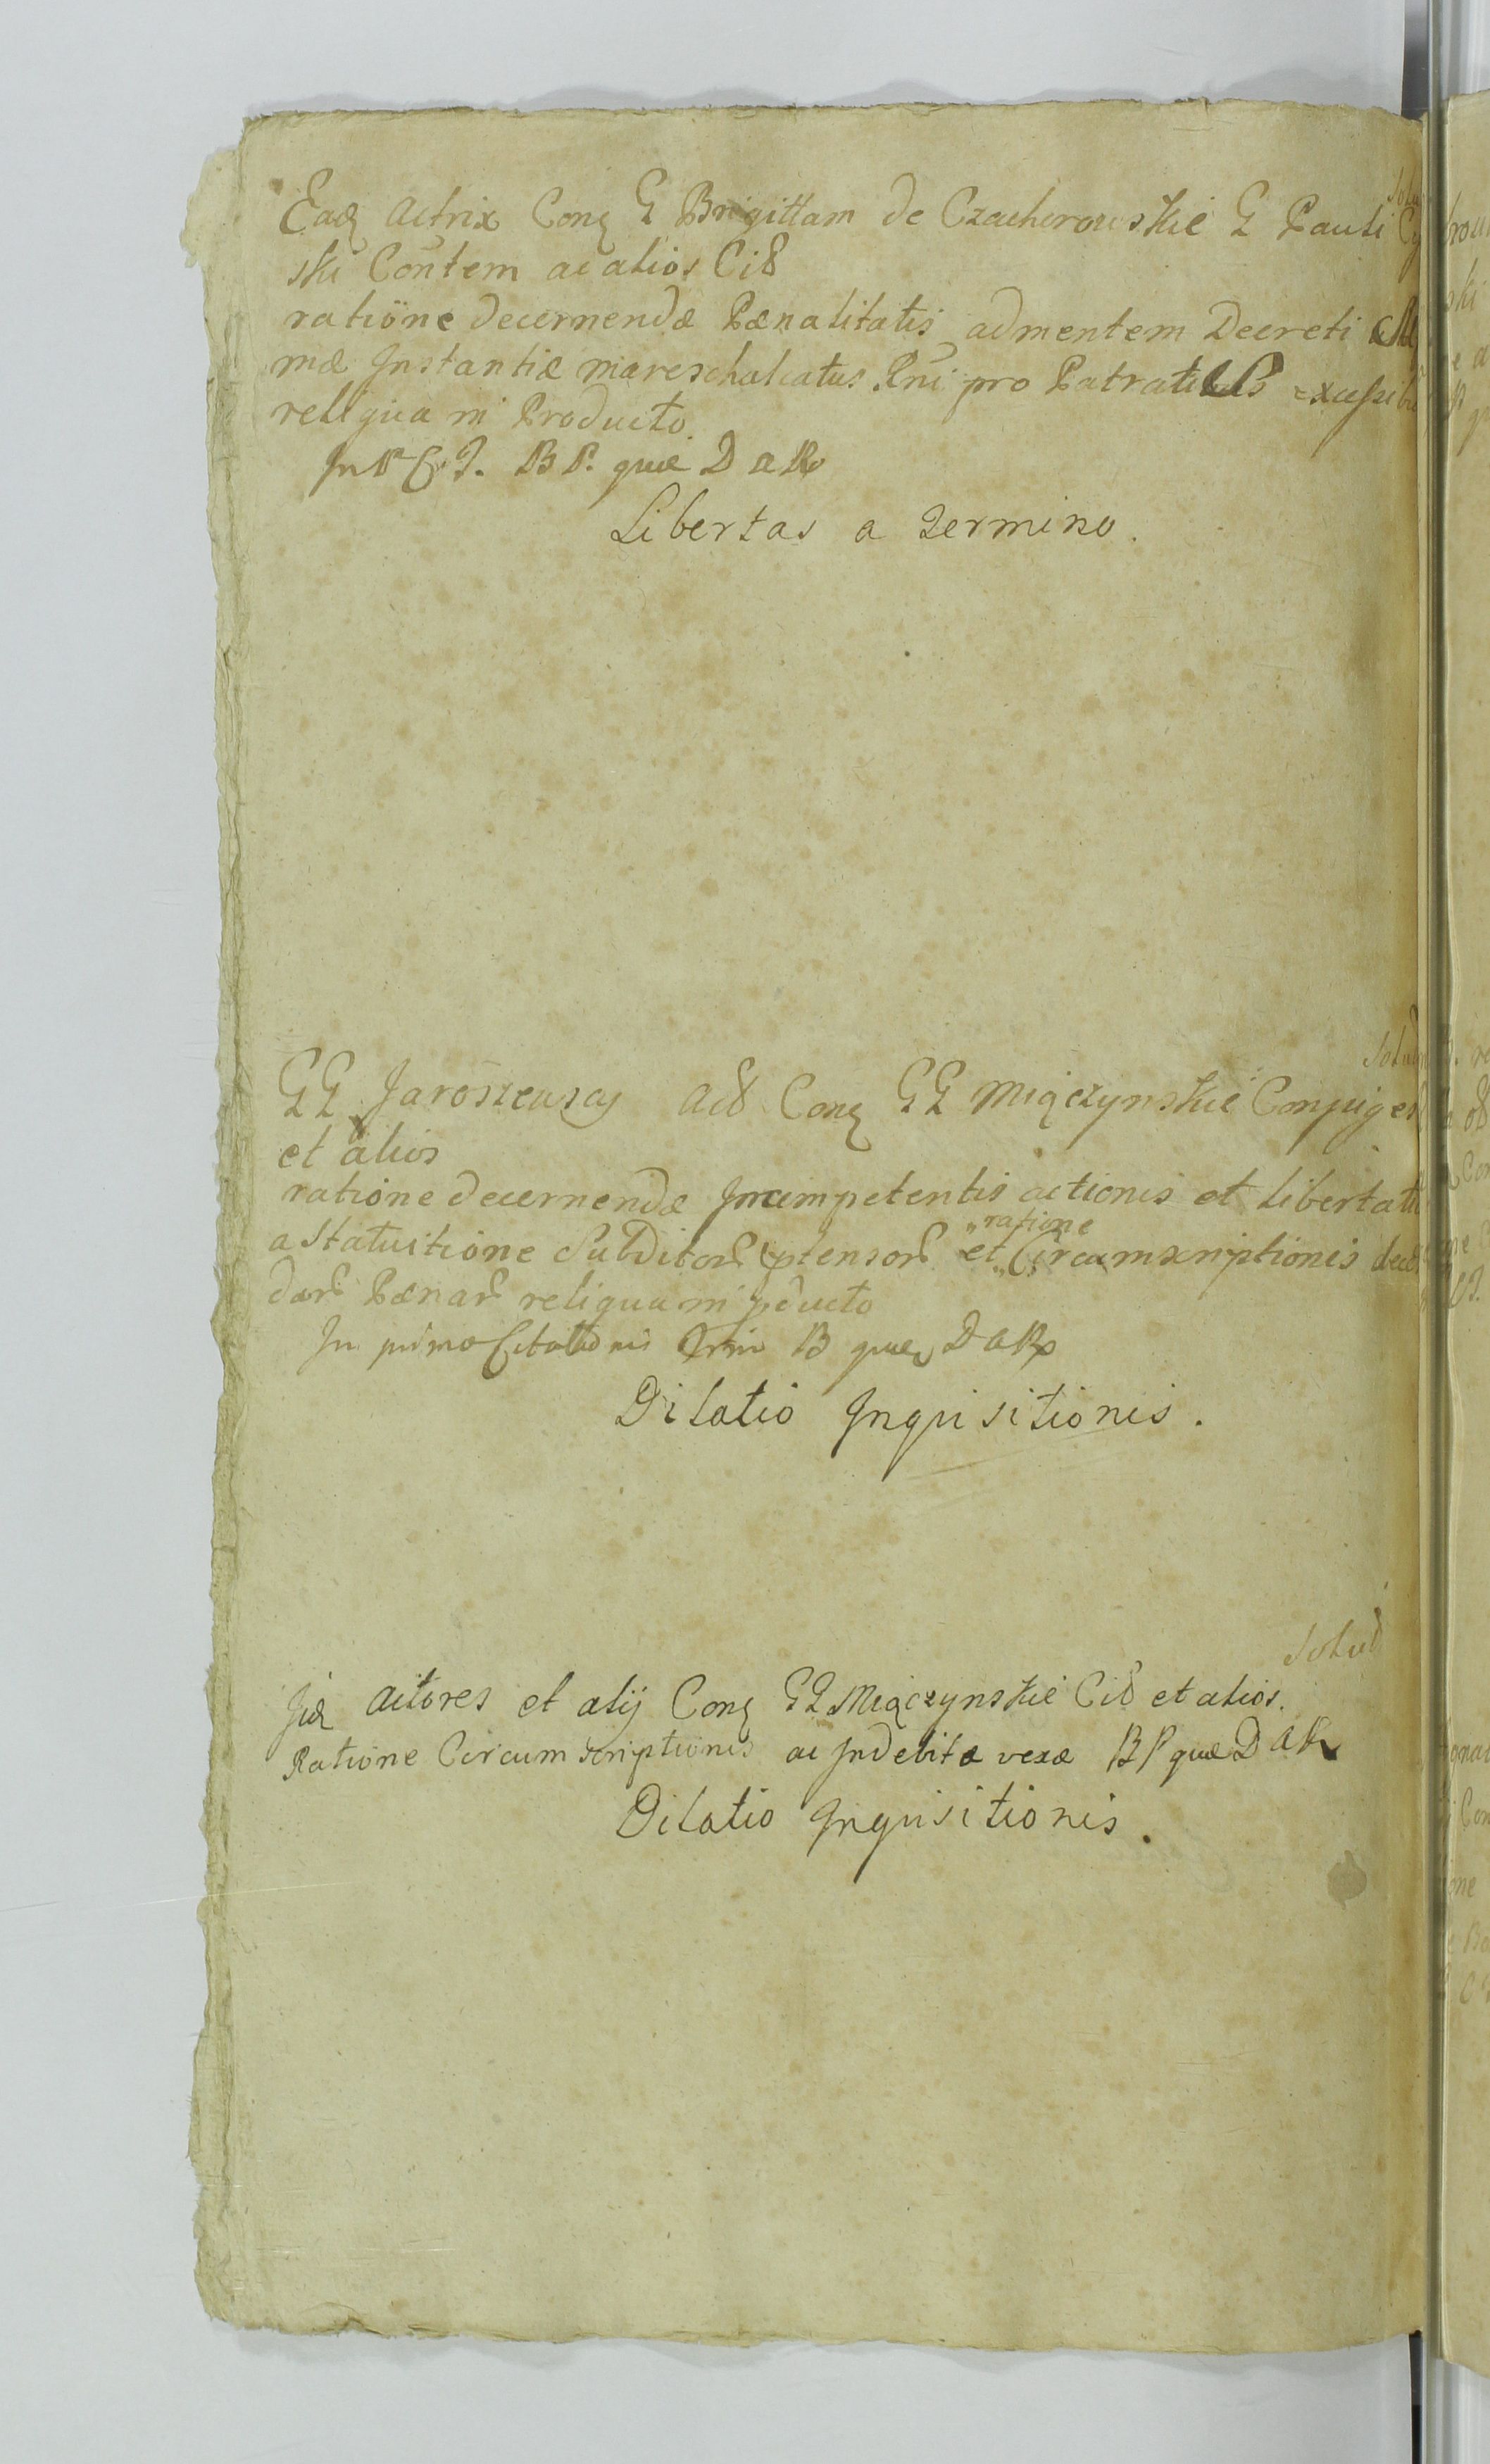 Solu
Eadq Actrix Conq G Brigittam de Czachorowskie G Pauli Cy
ski Contem ac alios Cit
ratione decernendæ Pænalitatis ad mentem Decreti
mæ Instantiæ mareschalcatus Rni pro Patratis excessibu
reliqua in Producto.
In P C T. B P. quæ D A R
Libertas a Termino.
Solud
GG Jaroszewscy Act Conq GG Miączynskie Conjuges
et alios
ratione decernendæ Incompetentis actionis et libertatis
ratione
a Statuitione Subditor ptensor et Circumscriptionis decer
dar Pænar reliqua in pducto
In primo Citationis Trno B quæ D A R
Dilatio Inquisitionis.
Solud
Jid Actores et alij Conq GG Miączynskie Cit et alios.
Ratione Circumscriptionis ac Indebitæ vexæ B P quæ D A R
Dilatio Inquisitionis.